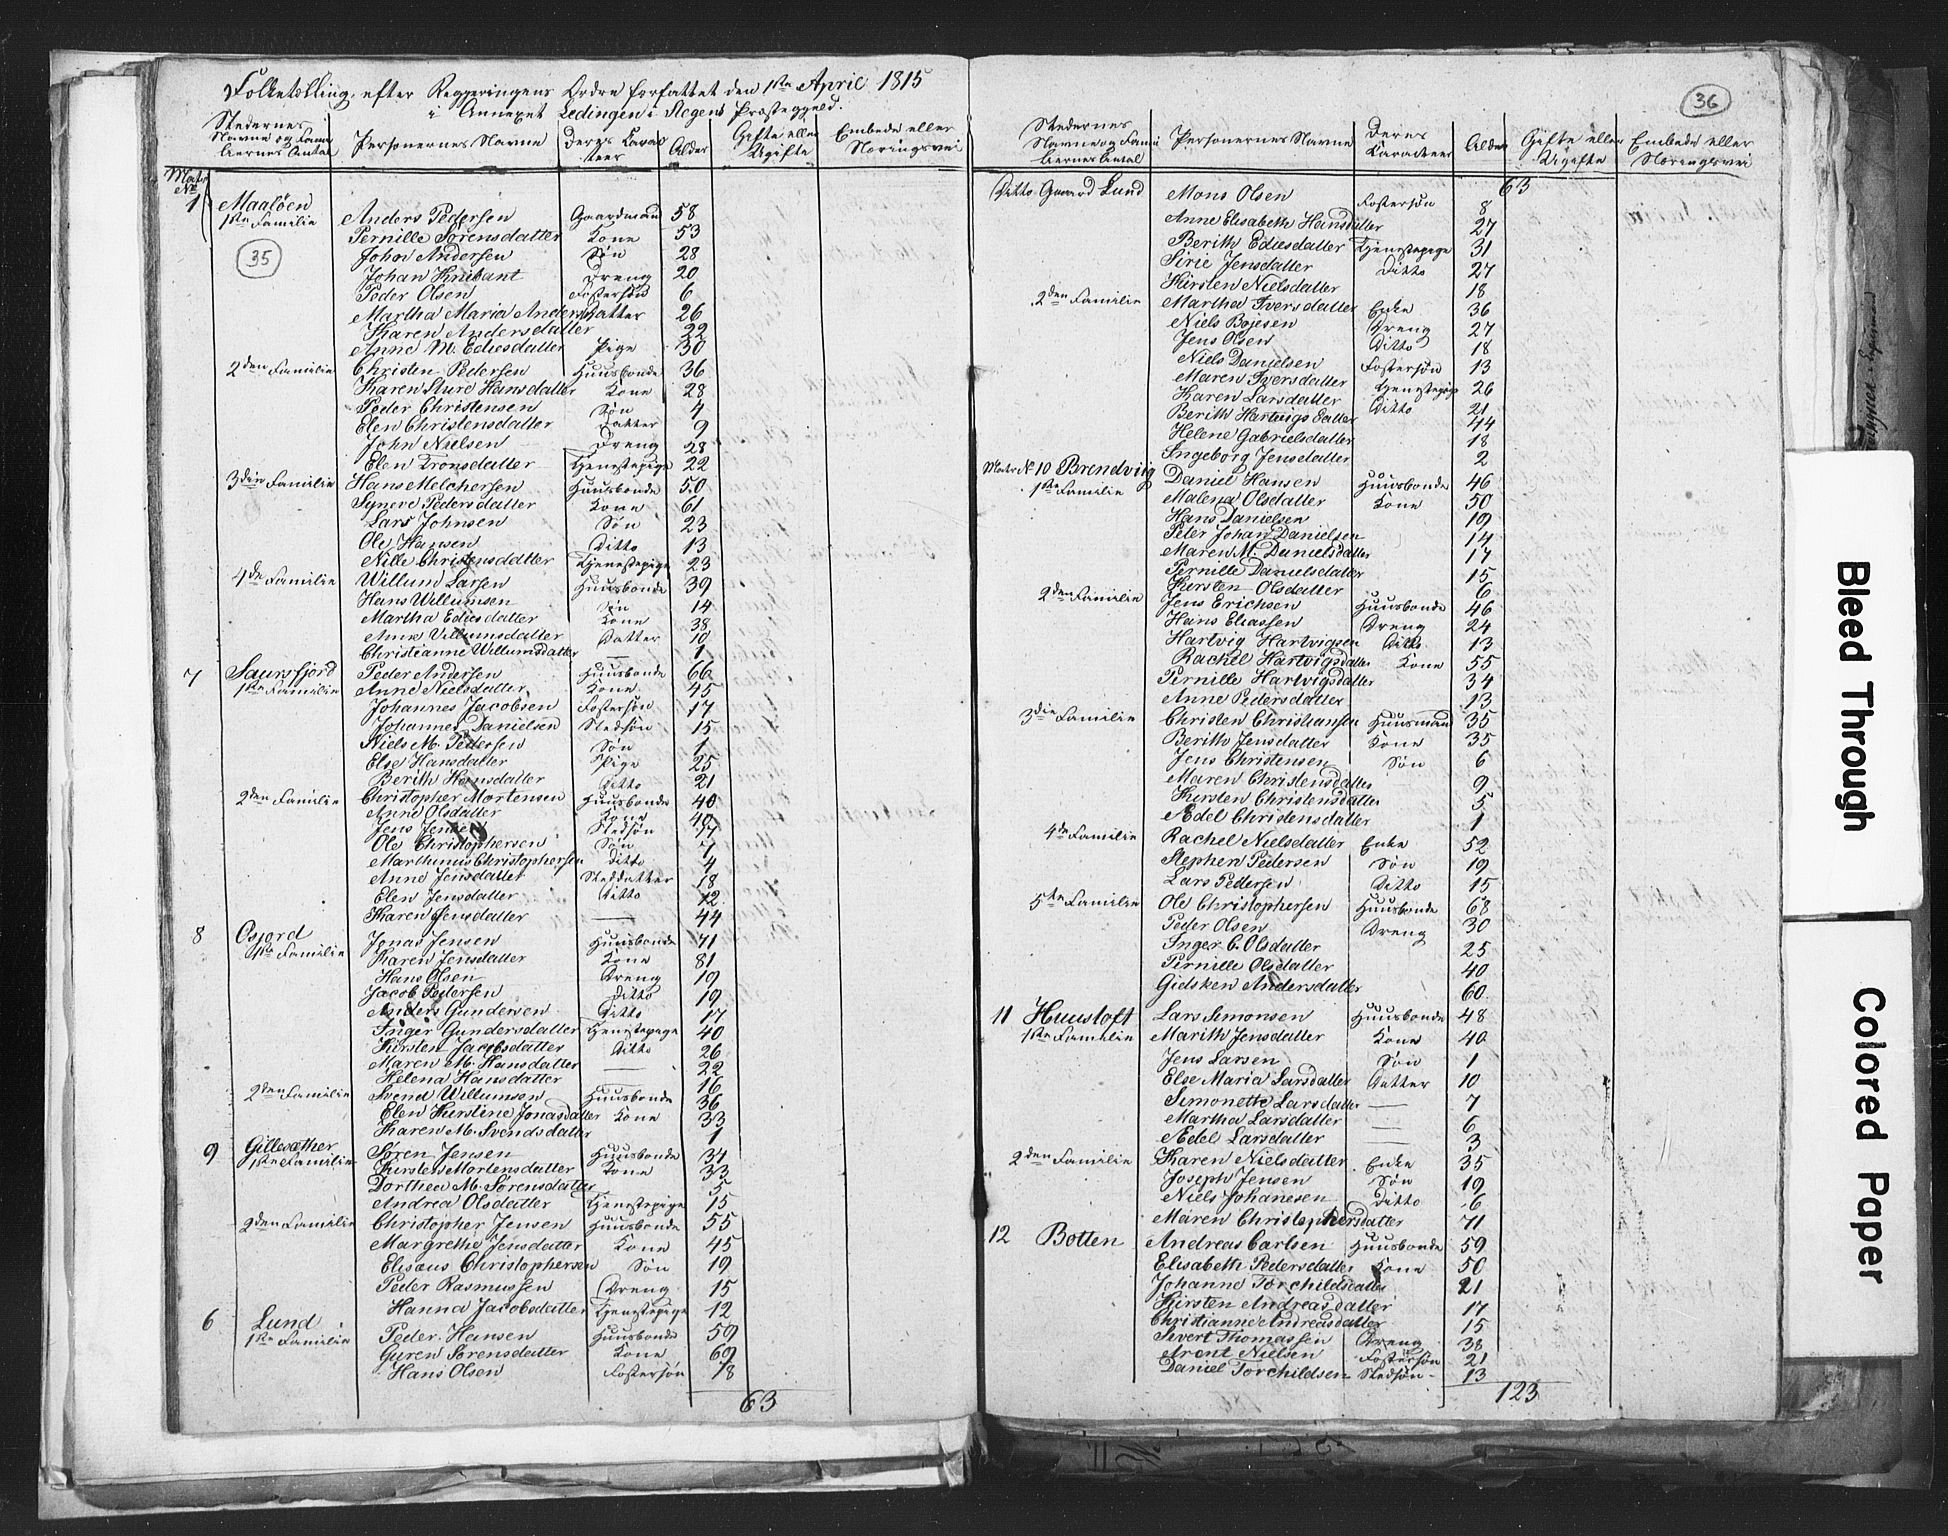 Folketelling efter Regjeringens Ordre forfattet den 1ste April 1815
i Annexet Ledingen i Stegens Præstegjeld.
Stedernes Navne og Familiernes Antal | Personernes Navne | Deres Karakteer | Alder | Gifte eller Ugifte | Embede eller Næringsvei
Matr No
1 Maaløen
1ste Familie Anders Pedersen Gaardmand 58
Pernille Sørensdatter Kone 53
35 John Andersen Søn 28
Johan Knibant Dreng 20
Peder Olsen Fostersøn 6
Martha Maria Anders Datter 26
Karen Andersdatter 22
Anne M. Ediesdatter Pige 30
2den Familie Christen Pedersen Huusbonde 36
Karen Sture Hansdatter Kone 28
Peder Christensen Søn 4
Elen Christensdatter Datter 9
John Nielsen Dreng 28
Elen Tronsdatter Tjenestepige 22
3die Familie Hans Melchersen Huusbonde 50
Syneve Pedersdatter Kone 61
Lars Johnsen Søn 23
Ole Hansen Ditto 13
Nille Christensdatter Tjenestepige 23
4de Familie Willum Larsen Huusbonde 39
Hans Willumsen Søn 14
Martha Ediesdatter Kone 38
Anne Villumsdatter Datter 10
Christianne Willumsdatter — 1
7 Saursfjord Peder Andersen Huusbonde 66
1ste Familie Anne Nielsdatter Kone 45
Johannes Jacobsen Fostersøn 17
Johannes Danielsen Stedsøn 15
Niels M. Pedersen Søn 1
Else Hansdatter Pige 25
Berith Hansdatter Ditto 21
2den Familie Christopher Mortensen Huusbonde 40
Anne Olsdatter Kone 40
Jens Jensen Stedsøn 17
Ole Christophersen Søn 7
Marthinus Christophersen Ditto 4
Anne Jensdatter Steddatter 18
Elen Jensdatter Ditto 12
Karen Jensdatter — 44
8 Osjord Jonas Jensen Huusbonde 71
1ste Familie Karen Jensdatter Kone 81
Hans Olsen Dreng 19
Jacob Pedersen Ditto 19
Anders Gundersen Ditto 17
Inger Gundersdatter Tjenestepige 40
Kirsten Jacobsdatter Ditto 26
Maren M. Hansdatter — 22
Helena Hansdatter — 16
2den Familie Svend Willumsen Huusbonde 36
Elen Kirstine Jonasdatter Kone 33
Karen M. Svendsdatter 1
9 Gillesæther Søren Jensen Huusbonde 34
1ste Familie Kirsten Mortensdatter Kone 33
Dorthea M. Sørensdatter 5
Andrea Olsdatter Tjenestepige 15
2den Familie Christopher Jensen Huusbonde 55
Margrethe Jensdatter Kone 45
Elisæus Christophersen Søn 19
Peder Rasmussen Dreng 15
Hanna Jacobsdatter Tjenestepige 12
6 Lund
1ste Familie Peder Hansen Huusbonde 59
Guren Sørensdatter Kone 69
Hans Olsen Fostersøn 18
63
36
Stedernes Navne og Familiernes Antal | Personernes Navne | Deres Karacteer | Alder | Gifte eller Ugifte | Embede eller Næringsvei
63
Ditto Gaard Lund Mons Olsen Fostersøn 8
Anne Elisabeth Hansdatter 27
Berith Ediesdatter Tjenestepige 31
Sirie Jensdatter Ditto 27
Kirsten Nielsdatter 18
2den Familie Martha Iversdatter Enke 36
Niels Bojesen Dreng 27
Jens Olsen Ditto 18
Niels Danielsen Fostersøn 13
Maren Iversdatter Tjenestepige 26
Karen Larsdatter Ditto 21
Berith Hartvigsdatter 44
Helene Gabrielsdatter 18
Ingeborg Jensdatter 2
Matr No 10 Brendviig Daniel Hansen Huusbonde 46
1ste Familie Malena Olsdatter Kone 50
Hans Danielsen 19
Peter Johan Danielsen 14
Maren M. Danielsdatter 17
Pernille Danielsdatter 15
Kirsten Olsdatter 6
2den Familie Jens Erichsen Huusbonde 46
Hans Eliassen Dreng 24
Hartvig Hartvigsen Ditto 13
Rachel Hartvigsdatter Kone 55
Pernille Hartvigsdatter 34
Anne Pedersdatter 13
3die Familie Christen Christiansen Huusmand 35
Berith Jensdatter Kone 35
Jens Christensen Søn 6
Maren Christensdatter 9
Kirsten Christensdatter 5
Edel Christensdatter 1
4de Familie Rachel Nielsdatter Enke 52
Stephen Pedersen Søn 19
Lars Pedersen Ditto 15
5te Familie Ole Christophersen Huusbonde 68
Peder Olsen Dreng 30
Inger C. Olsdatter 25
Pernille Olsdatter 40
Gidsken Andersdatter 60
11 Huustoft Lars Simonsen Huusbonde 48
1ste Familie Marith Jensdatter Kone 40
Jens Larsen Søn 1
Else Maria Larsdatter Datter 10
Simonette Larsdatter — 7
Martha Larsdatter — 6
Edel Larsdatter — 3
2den Familie Karen Nielsdatter Enke 35
Joseph Jensen Søn 19
Niels Johanesen Ditto 6
Maren Christophersdatter 71
12 Botten Andreas Carlsen Huusbonde 59
Elisabeth Pedersdatter Kone 50
Johanne Torchildsdatter 21
Kirsten Andreasdatter 17
Christianne Andreasdatter 15
Sivert Thomassen Dreng 38
Arent Nielsen Fostersøn 21
Daniel Torchildsen Stedsøn 13
123
Bleed Through
Colored Paper